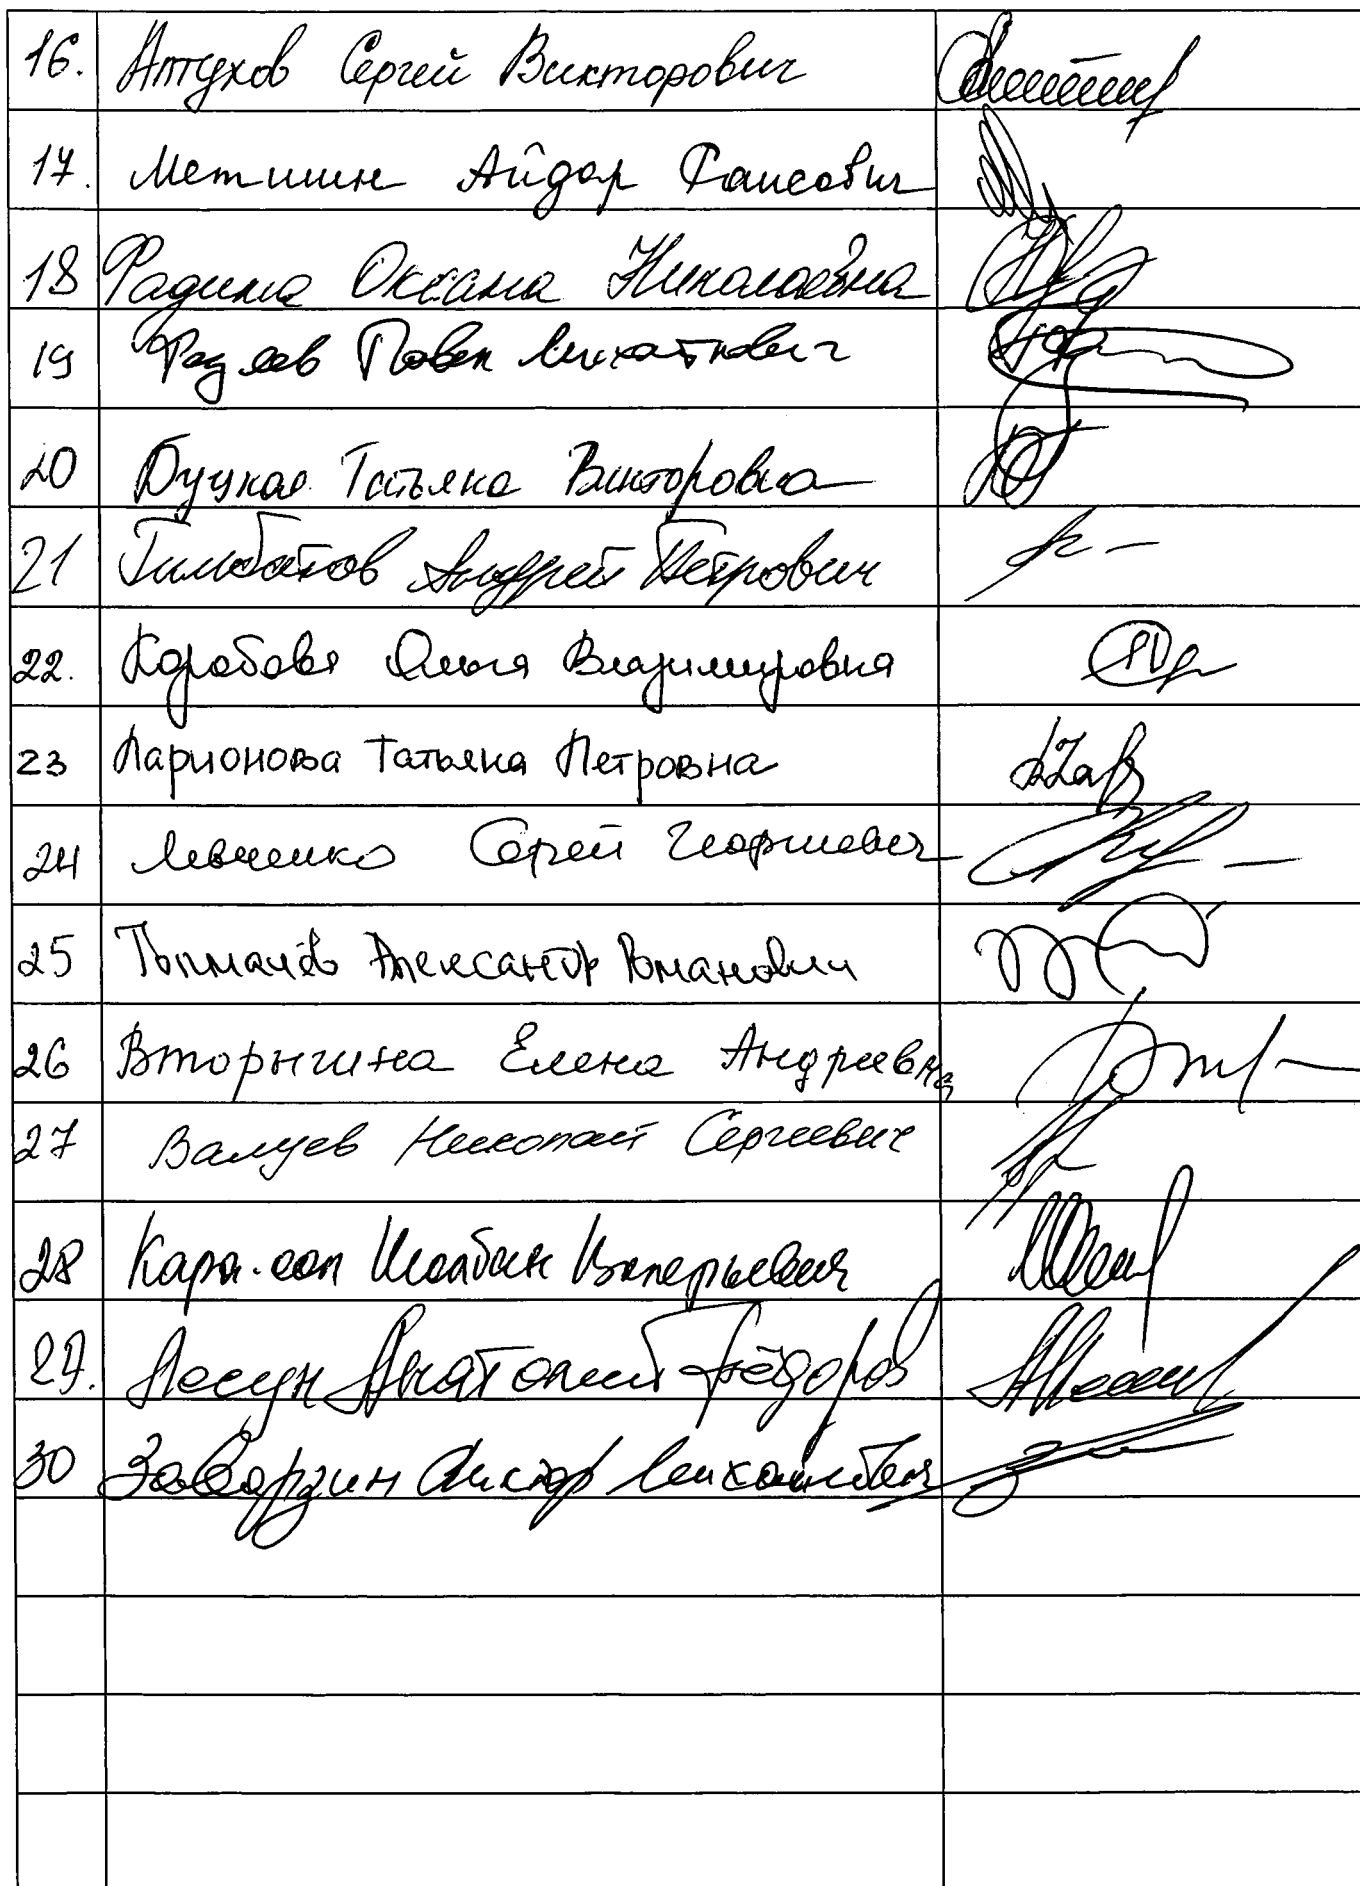 16. Алтухов Сергей Викторович
17. Метшин Айдар Раисович
18 Фадина Оксана Николаевна
19 Фадеев Павел Михайлович
20 Буцкая Татьяна Викторовна
21 Гимбатов Андрей Петрович
22. Коробова Ольга Владимировна
23 Ларионова Татьяна Петровна
24 Левченко Сергей Георгиевич
25 Толмачёв Александр Романович
26 Вторыгина Елена Андреевна
27 Валуев Николай Сергеевич
28 Кара-оол Шолбан Валерьевич
29. Лесун Анатолий Фёдоров
30 Заварзин Виктор Михайлович